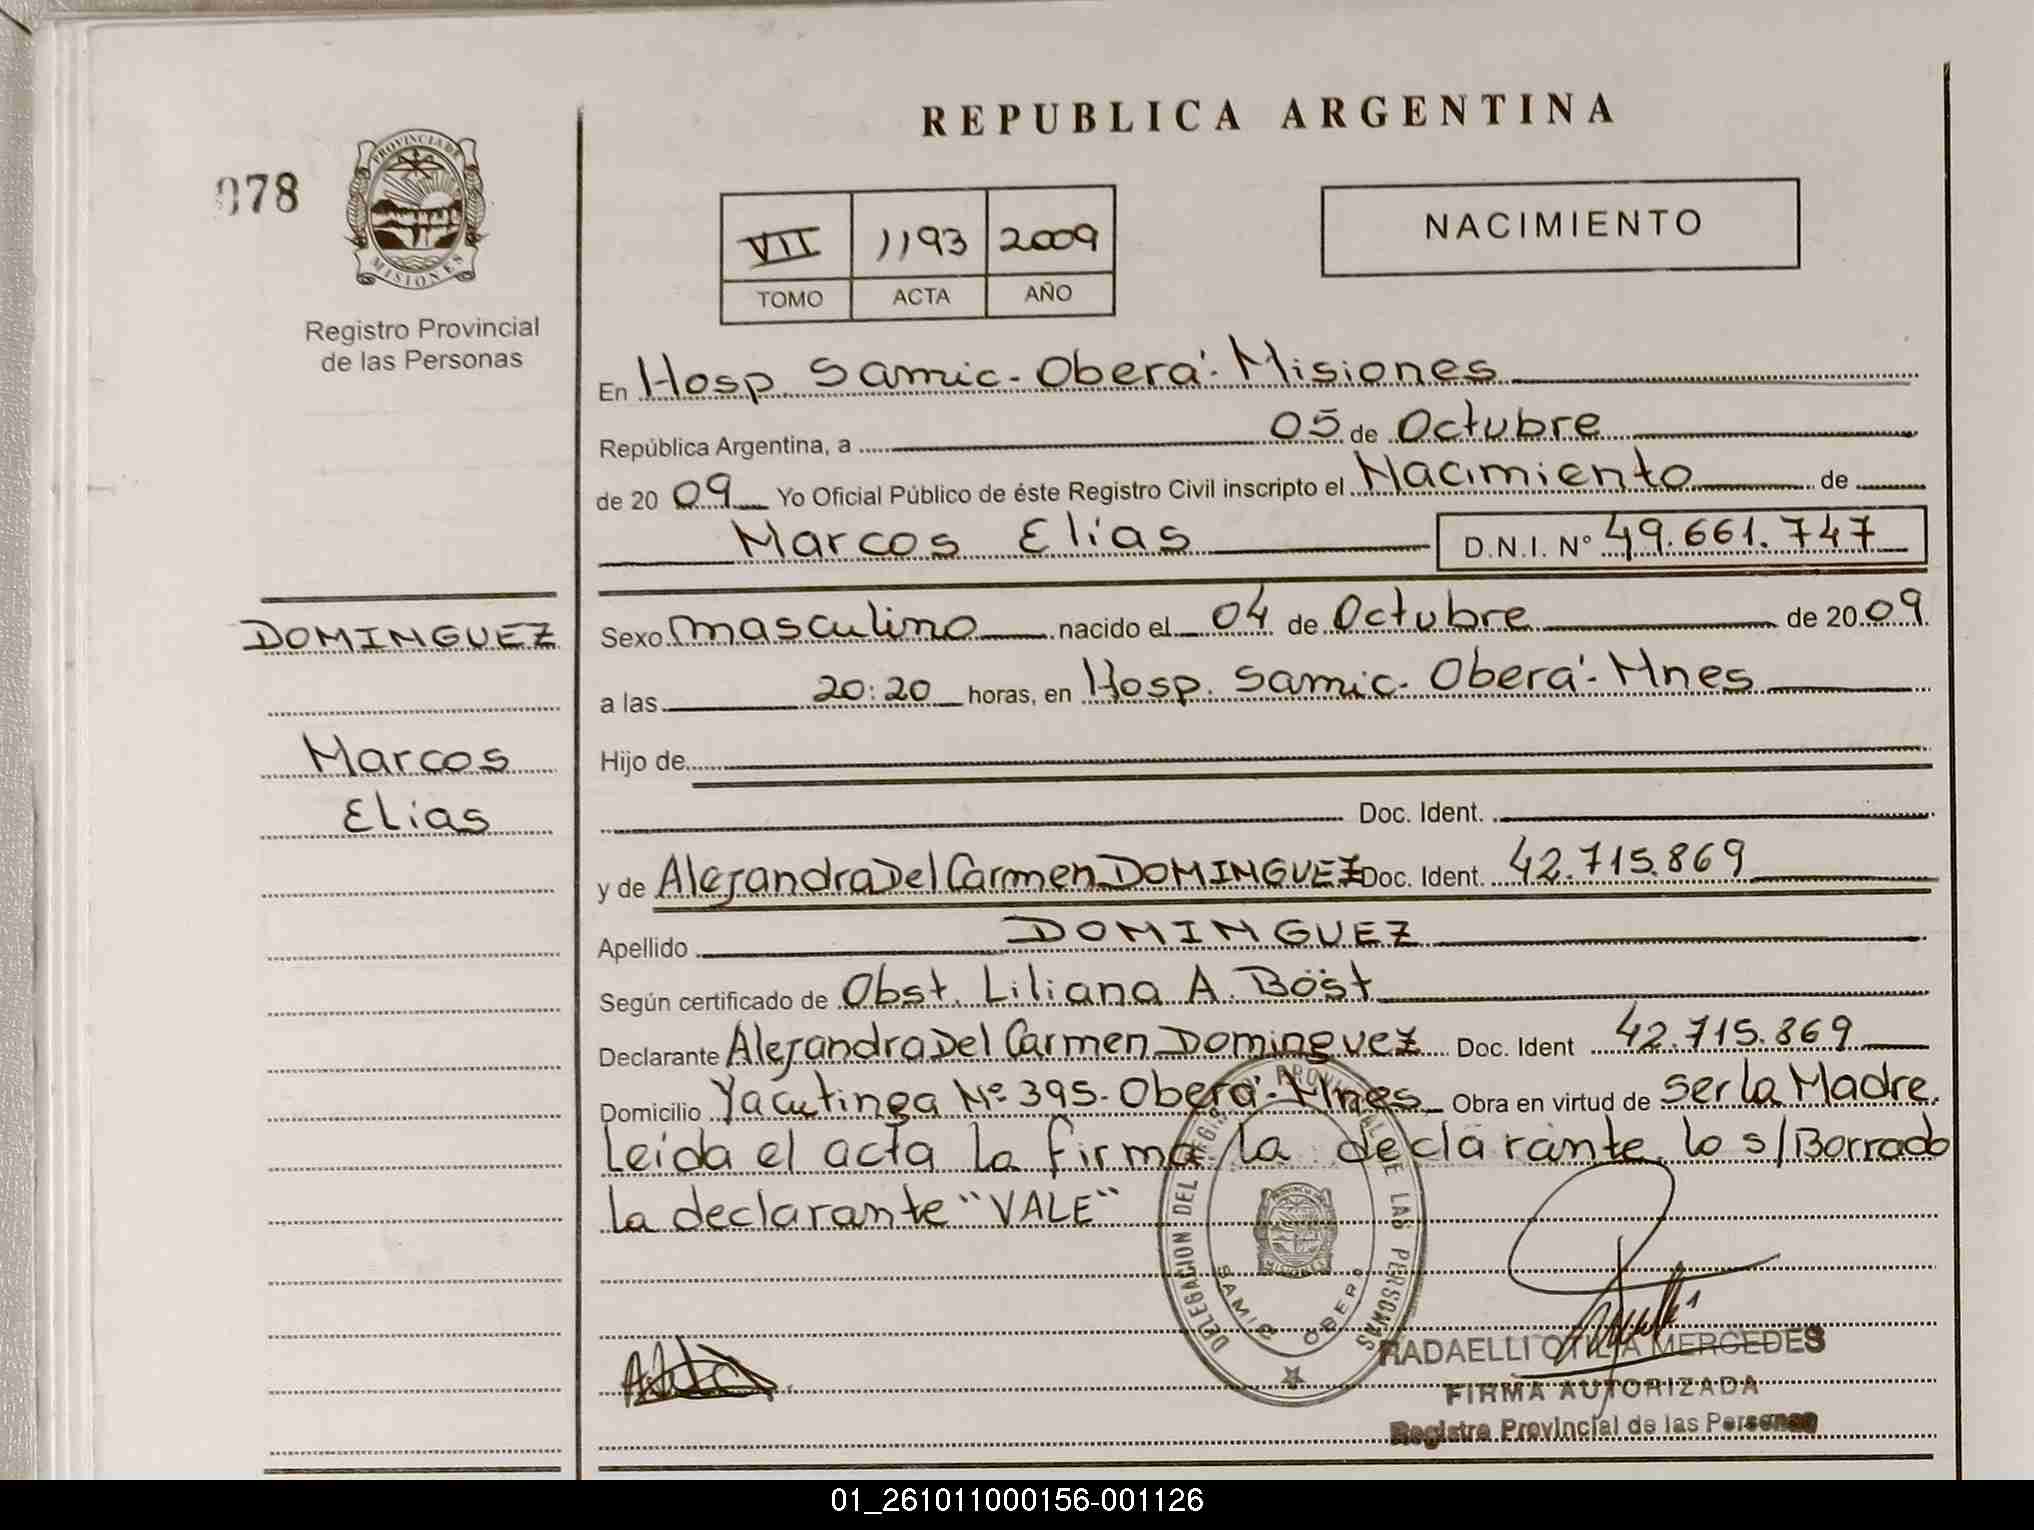 REPUBLICA ARGENTINA
078
PROVINCIA DE
MISIONES
Registro Provincial
de las Personas
VII 1193 2009
TOMO ACTA AÑO
NACIMIENTO
En Hosp. Samic - Oberá - Misiones
República Argentina, a 05 de Octubre
de 2009 Yo Oficial Público de éste Registro Civil inscripto el Nacimiento de
Marcos Elías D.N.I. N° 49.661.747
DOMINGUEZ
Marcos
Elias
Sexo masculino nacido el 04 de Octubre de 2009
a las 20:20 horas, en Hosp. Samic - Oberá - Mnes
Hijo de
Doc. Ident.
y de Alejandra Del Carmen DOMINGUEZ Doc. Ident. 42.715.869
Apellido DOMINGUEZ
Según certificado de Obst. Liliana A. Böst
Declarante Alejandra Del Carmen Dominguez Doc. Ident 42.715.869
Domicilio Yacutinga Nº 395 - Oberá - Mnes Obra en virtud de ser la Madre.
Leída el acta la firma la declarante. lo s/Borrado
la declarante "VALE"
DELEGACION DEL REGISTRO PROVINCIAL DE LAS PERSONAS
SAMIC OBERA
RADAELLI OTILIA MERCEDES
FIRMA AUTORIZADA
Registro Provincial de las Personas
01_261011000156-001126